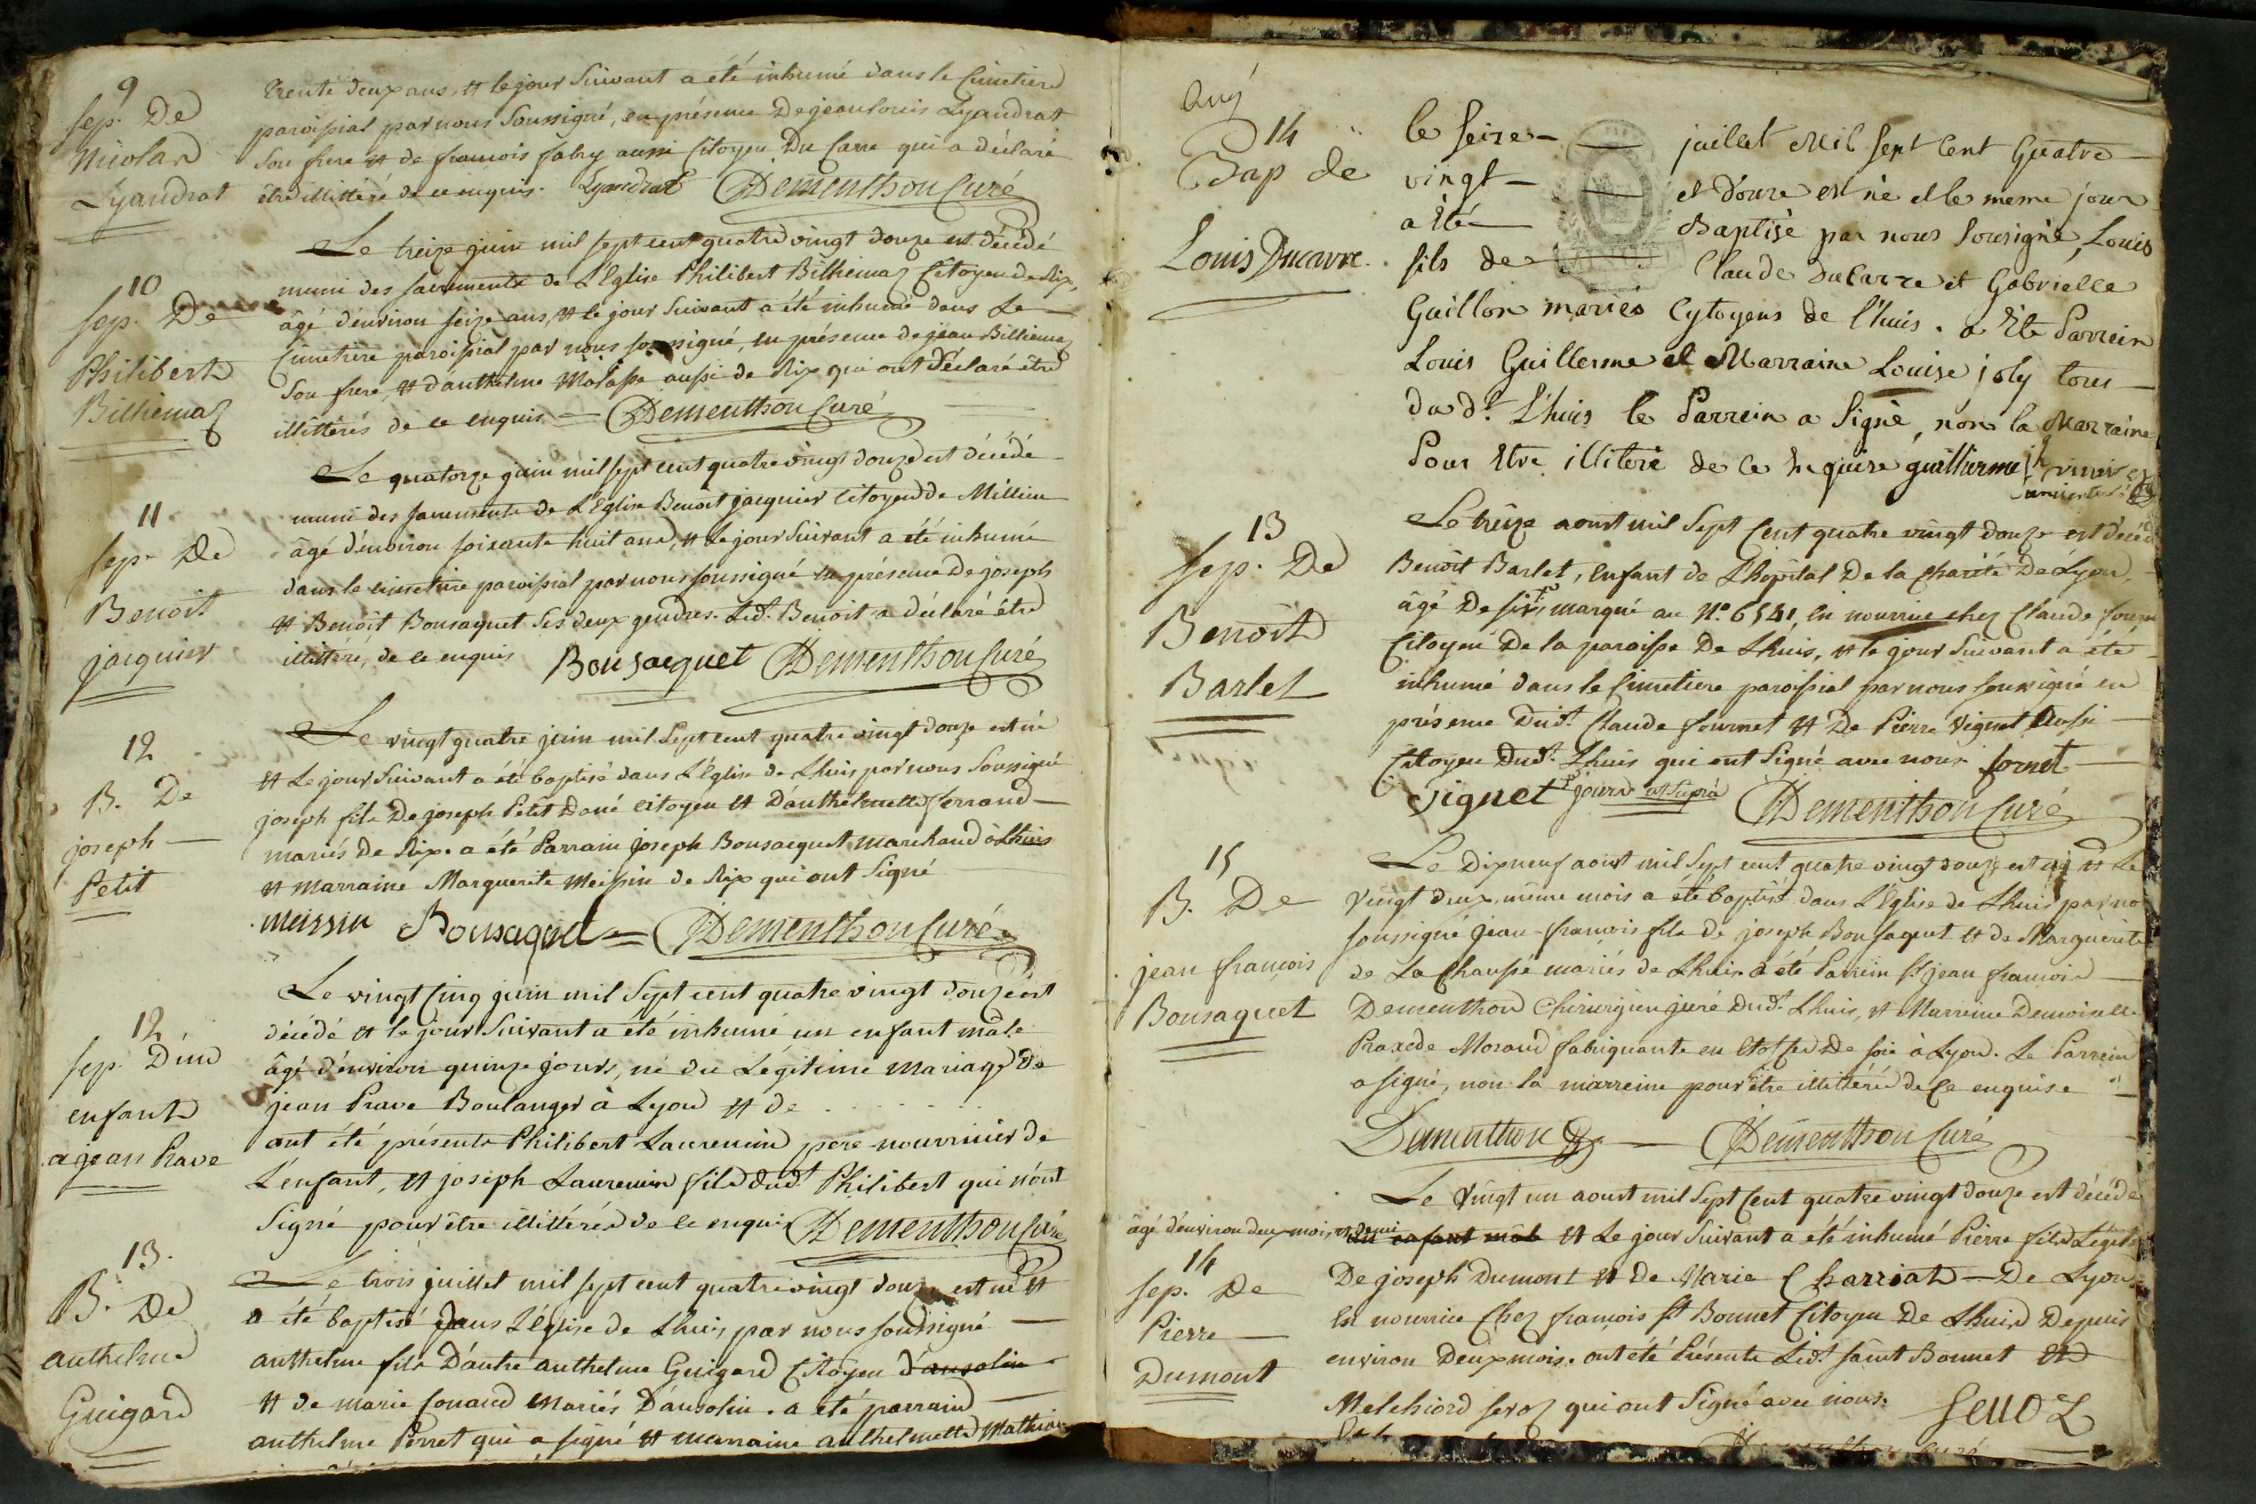 9
Sep. De
Nicolas
Lyaudrat
trente deux ans, et le jour suivant a été inhumé dans le Cimetiere
paroissial par nous soussigné, en présence de jean Louis Lyaudrat
son frere et de francois fabry aussi Citoyen Du Carre qui a déclaré
être illittéré de ce enquis. Lyaudrat Dementhon Curé
10
Sep. De
Philibert
Billiemaz
Le treize juin mil sept cent quatre vingt douze est décédé
muni des sacrements de L'Eglise Philibert Billiemaz Citoyen de Rix,
âgé d'environ seize ans, et le jour suivant a été inhumé dans Le
Cimetiere paroissial par nous soussigné, en présence de jean Billiemaz
son frere, et d'anthelme Molasse aussi de Rix qui ont déclaré être
illittérés de ce enquis Dementhon Curé
11
Sep. De
Benoit
jacquier
Le quatorze juin mil sept cent quatre vingt douze est décédé
muni des sacrements de L'Eglise Benoit jacquier Citoyen de Millieu
âgé d'environ soixante huit ans, et Le jour suivant a été inhumé
dans le cimetiere paroissial par nous soussigné en présence De joseph
et Benoît Bonsaquet Ses deux gendres. Led. Benoit a déclaré être
illittéré, de ce enquis Bonsacquet Dementhon Curé
12
B. De
joseph
Petit
Le vingt quatre juin mil Sept cent quatre vingt douze est né
et Le jour suivant a été baptisé dans L'Eglise de Lhuis par nous Soussigné
joseph fils De joseph Petit Doué Citoyen et D'anthelmette ferrand
mariés De Rix. a été Parrain joseph Bonsacquet marchand à Lhuis
et marraine Marguerite Meissin de Rix qui ont Signé
meissin Bonsaquet Dementhon Curé
12
Sep. D'un
enfant
a jean Prave
Le vingt Cinq juin mil Sept cent quatre vingt douze est
décédé et le jour Suivant a été inhumé un enfant mâle
âgé d'environ quinze jours, né du Légitime mariage de
jean Prave Boulanger à Lyon et de . . . . .
ont été présents Philibert Laurencin pere nourricier de
L'enfant, et joseph Laurencin fils dud. Philibert qui n'ont
Signé pour être illittérés de ce enquis Dementhon Curé
13.
B. De
anthelme
Guigard
Le trois juillet mil sept cent quatre vingt douze est né et
a été baptisé dans L'église de Lhuis par nous soussigné
anthelme fils D'autre anthelme Guigard Citoyen d'ansolin
et de marie fonaud mariés D'ansolin. a été parrain
anthelme Perret qui a signé et marraine anthelmette Mathieu
14
Bap de
Louis Ducarre
le seize juillet Mil sept Cent Quatre
vingt et douze est né et le meme jour
a été Baptisé par nous sousigné, Louis
fils de Claude Ducarre et Gabrielle
Guillon mariés Cytoyens de l'huis. a été Parrein
Louis Guillerme et Marraine Louise joly tous
du d. L'huis le Parrein a signé, non la Marraine
Pour être illiteré de ce Enquise guillierme
13
Sep. De
Benoît
Barlet
Le treize aoust mil Sept Cent quatre vingt douze est décédé
Benoît Barlet, enfant de L'hôpital De la Charité De Lyon,
âgé De six marqué au N.o 6541, en nourrice chez Claude fournet
Citoyen De la paroisse De Lhuis, et le jour suivant a été
inhumé dans le Cimetiere paroissial par nous soussigné en
présence Dud. Claude fournet et De Pierre Vignet Aussi
Citoyen Dud. Lhuis qui ont signé avec nous fornet
Viguet jours ut supra Dementhon Curé
15
B. De
jean francois
Bonsaquet
Le Dixneuf aoust mil Sept cent quatre vingt douze est né et Le
vingt deux même mois a été baptisé dans L'Eglise de Lhuis par no
soussigné jean-francois fils de joseph Bonsaquet et de Marguerite
de La Chaussé mariés de Lhuis. a été Parrein Sr jean francois
Dementhon Chirurgien juré Dud. Lhuis, et Marreine Demoiselle
Praxede Morand fabriquante en étoffes De soie à Lyon. Le Parrein
a signé, non la marreine pour être illittérée de Ce enquise
Dementhon Dementhon Curé
14
Sep. De
Pierre
Dumont
Le Vingt un aoust mil Sept Cent quatre vingt douze est décédé
âgé d'environ deux mois et demi un enfant mâle et Le jour suivant a été inhumé Pierre fils Légit
De joseph Dumont et de Marie Charriat De Lyon
En nourrice Chez francois St Bonnet Citoyen De Lhuis Depuis
environ Deux mois. ont été Présents Led. saint Bonnet et
Melchiord seroz qui ont Signé avec nous. Seuoz